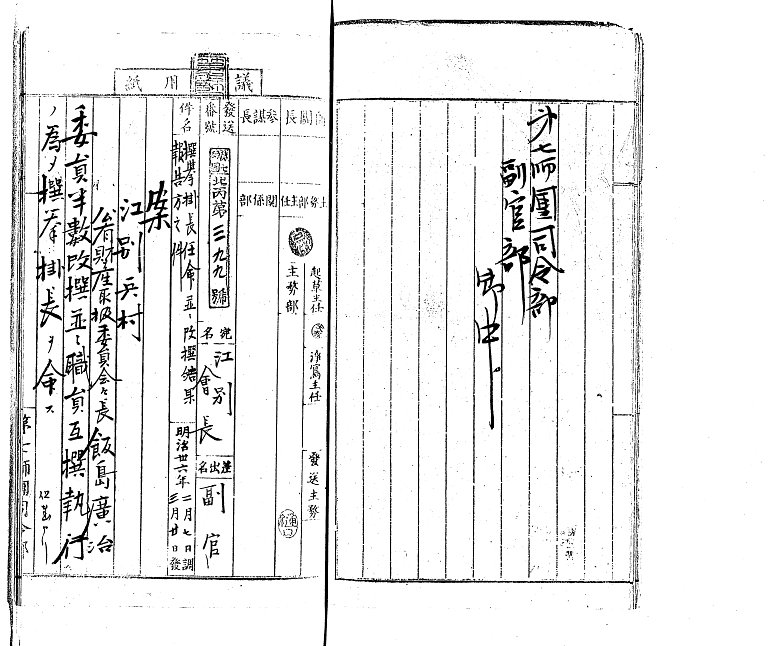 第七師團司令部
副官部
御中
議用紙
參謀長
發送番號
件名
關係部
主務部主任
北丙第三九九號
撰擧掛長任命並ニ改撰結果
報告方之件
起草主任
淨寫主任
主務部
發送主務
宛名
江別
會長
差出名
副官
明治卅六年
二月七日調
三月廿日發
案
江別兵村
公有財産取扱委員會々長 飯島廣治
委員半數改撰並ニ職員互撰執行
ノ為メ撰擧掛長ヲ命ス
第七師團司令部